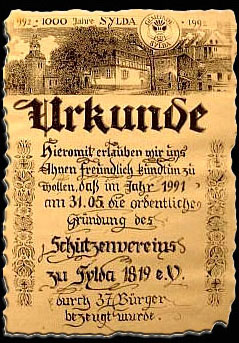 992 · 1000 Jahre SYLDA · 1992
GEMEINDE SYLDA
Urkunde
Hiermit erlauben wir uns
Ihnen freundlich kundtun zu
wollen, daß im Jahr 1991
am 31.05. die ordentliche
Gründung des
Schützenvereins
zu Sylda 1819 e.V.
durch 37 Bürger
bezeugt wurde.